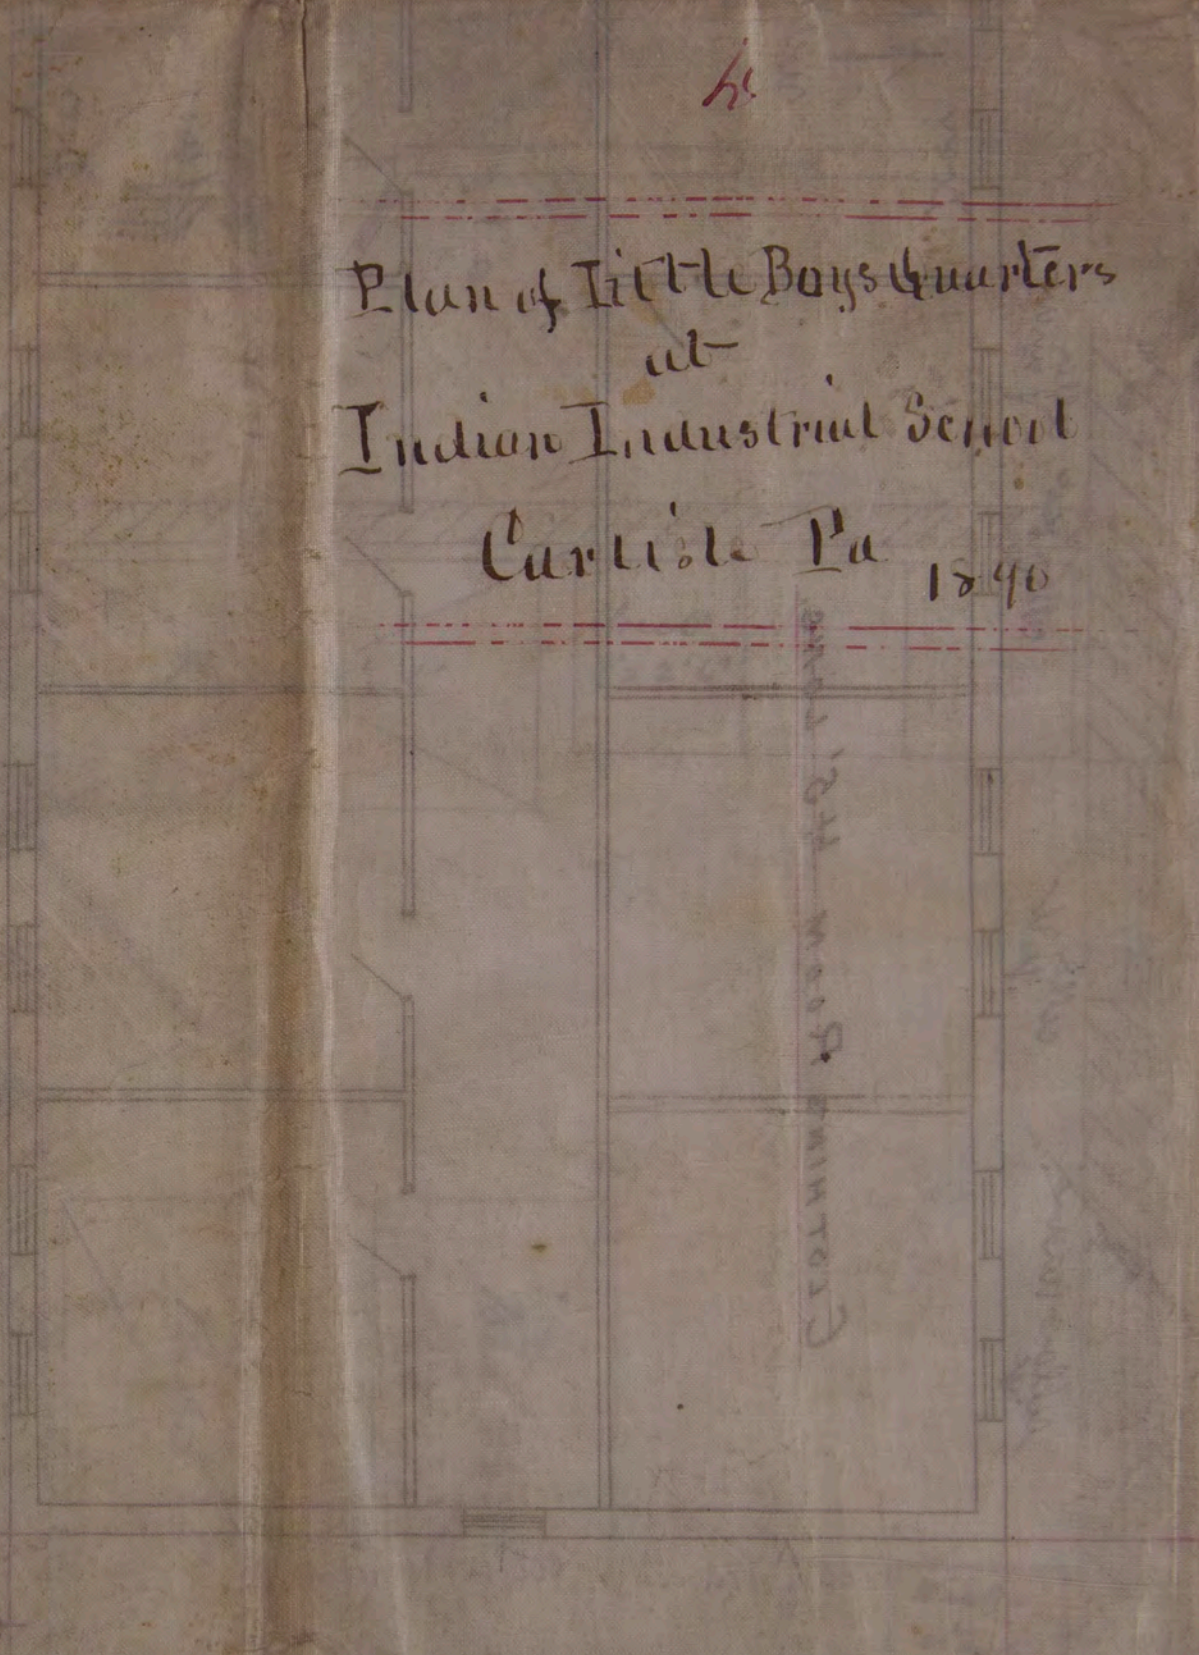 4.
Plan of Little Boys Quarters
at
Indian Industrial School
Carlisle Pa 1890
CLOTHING ROOM